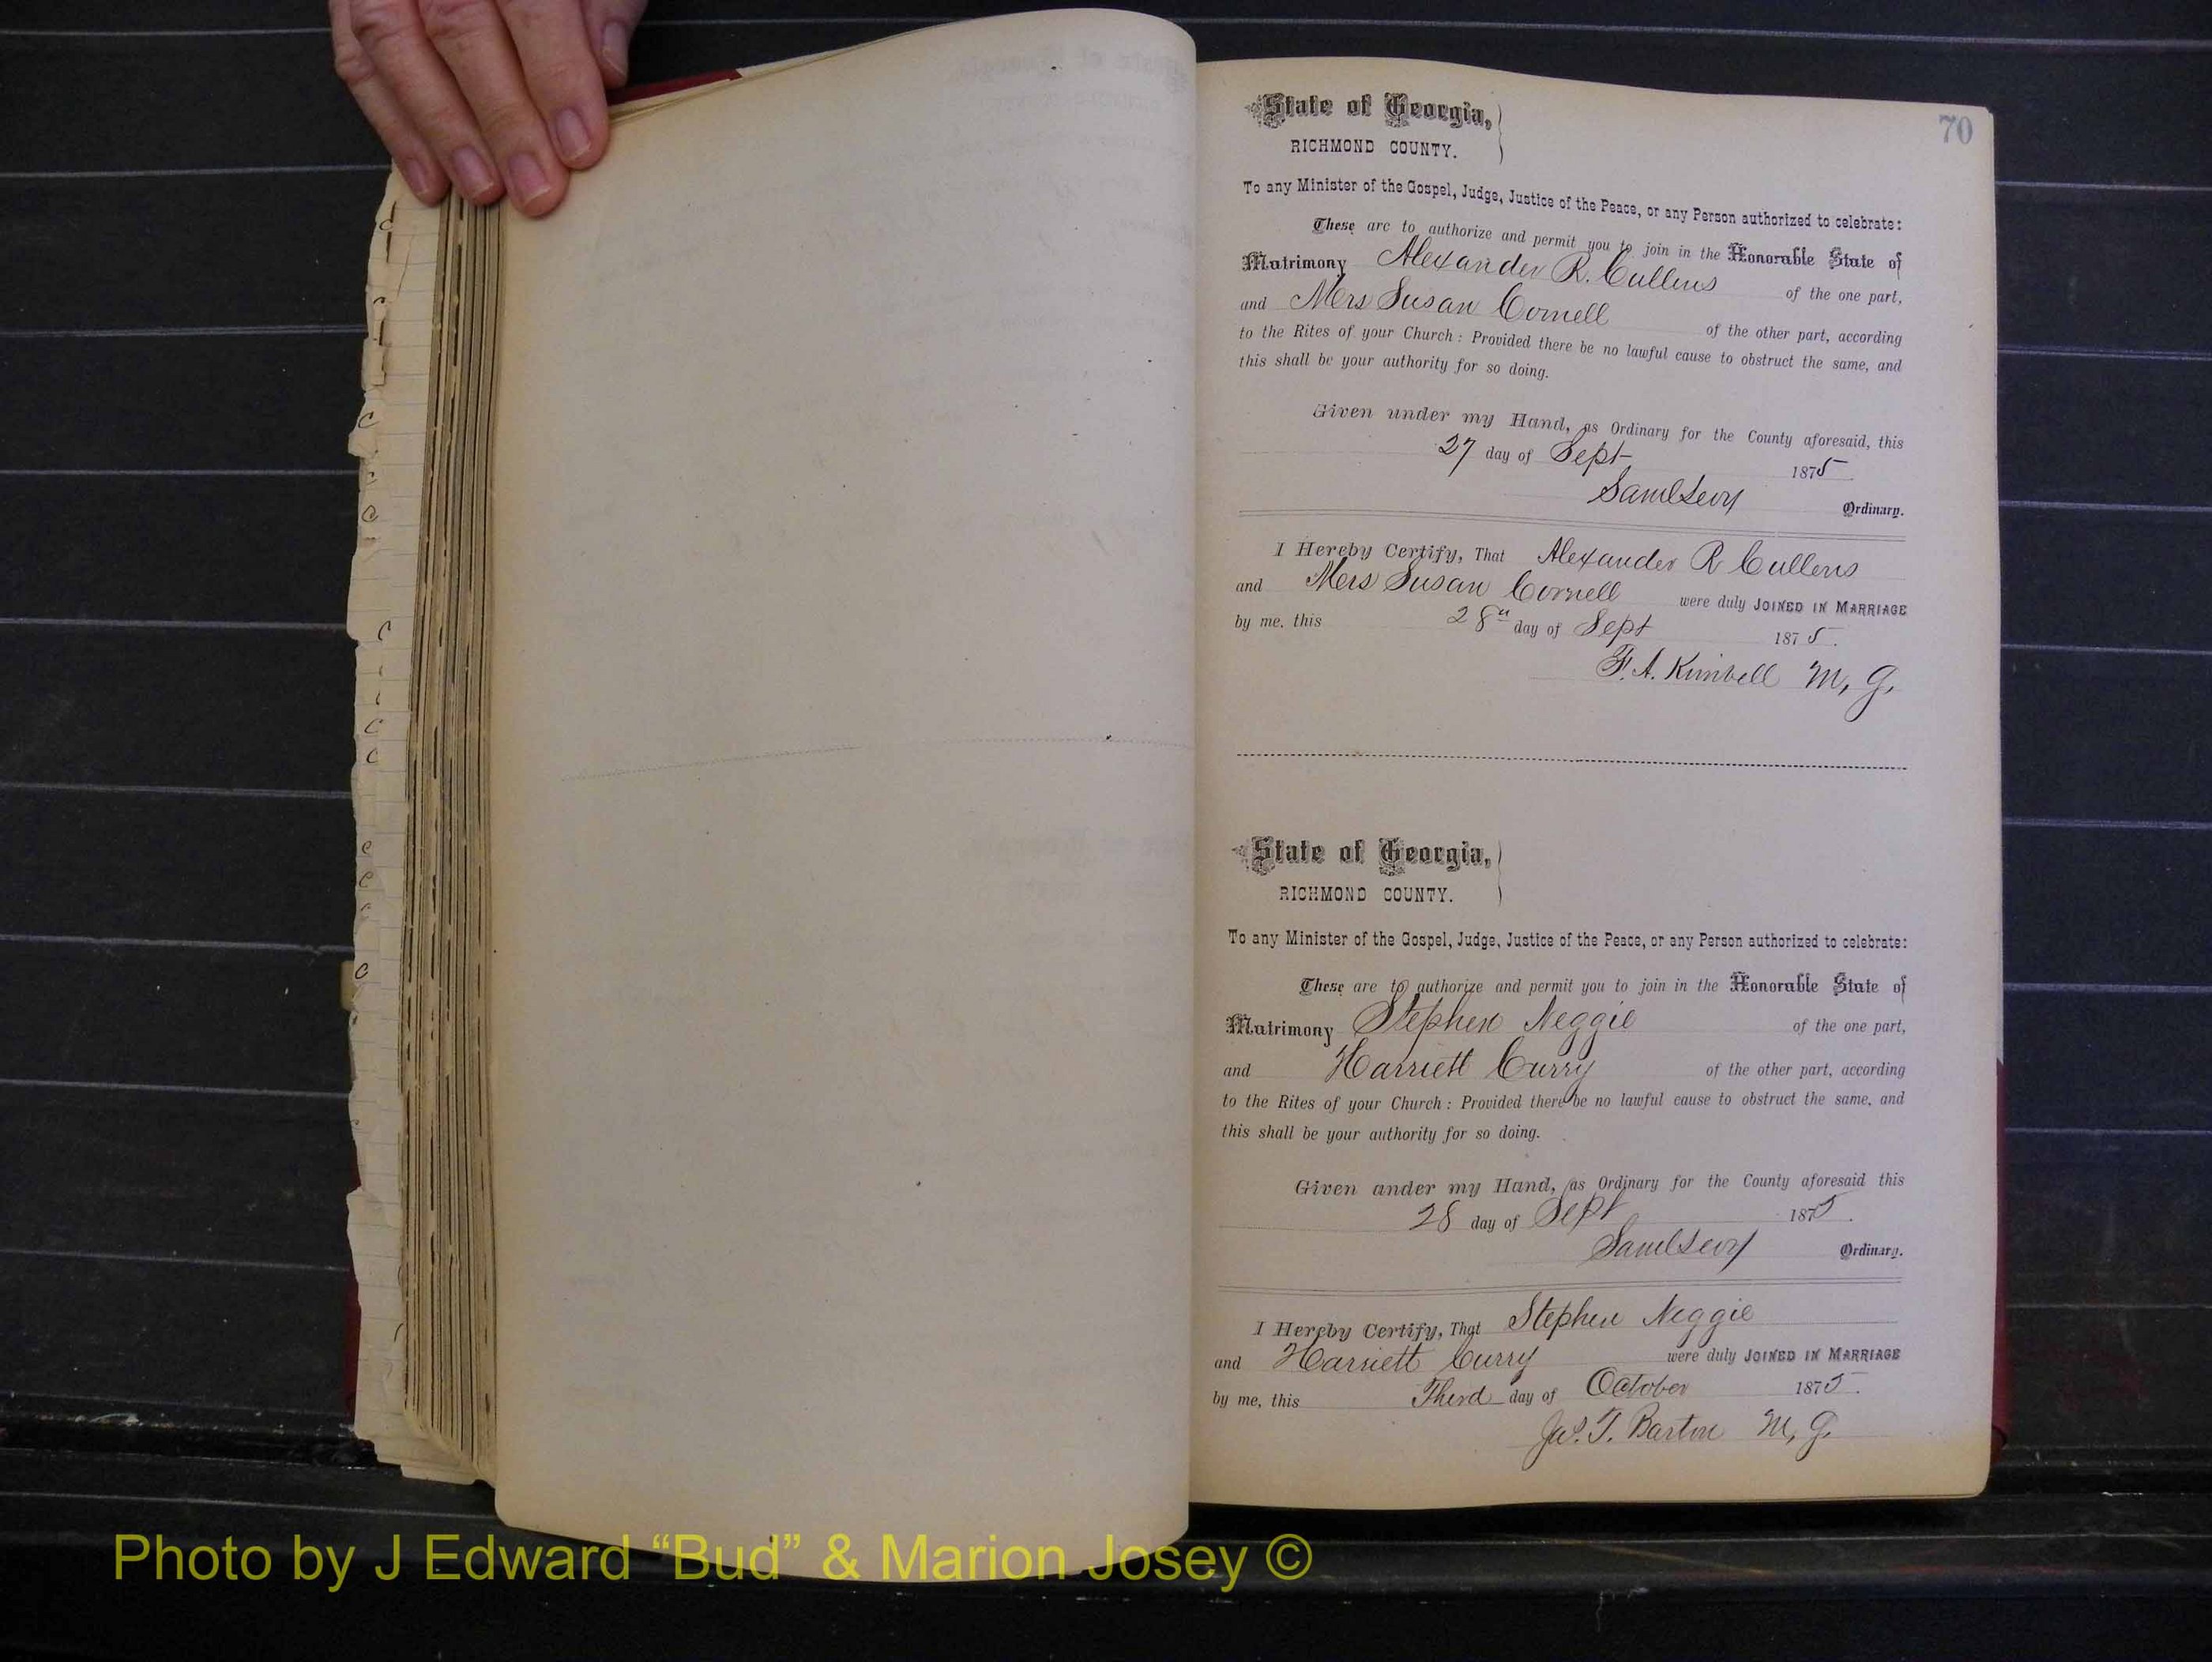 70
State of Georgia,
RICHMOND COUNTY.
To any Minister of the Gospel, Judge, Justice of the Peace, or any Person authorized to celebrate:
These are to authorize and permit you to join in the Honorable State of
Matrimony Alexander R. Cullens of the one part,
and Mrs Susan Cornell of the other part, according
to the Rites of your Church: Provided there be no lawful cause to obstruct the same, and
this shall be your authority for so doing.
Given under my Hand, as Ordinary for the County aforesaid, this
27 day of Sept 1875
Saml Levy Ordinary.
I Hereby Certify, That Alexander R Cullens
and Mrs Susan Cornell were duly JOINED IN MARRIAGE
by me, this 28" day of Sept 1875.
F. A. Kimbell M, G.
State of Georgia,
RICHMOND COUNTY.
To any Minister of the Gospel, Judge, Justice of the Peace, or any Person authorized to celebrate:
These are to authorize and permit you to join in the Honorable State of
Matrimony Stephen Neggie of the one part,
and Harriett Curry of the other part, according
to the Rites of your Church: Provided there be no lawful cause to obstruct the same, and
this shall be your authority for so doing.
Given under my Hand, as Ordinary for the County aforesaid this
28 day of Sept 1875.
Saml Levy Ordinary.
I Hereby Certify, That Stephen Neggie
and Harriett Curry were duly JOINED IN MARRIAGE
by me, this Third day of October 1875.
Jas. T. Barton M, G.
Photo by J Edward “Bud” & Marion Josey ©